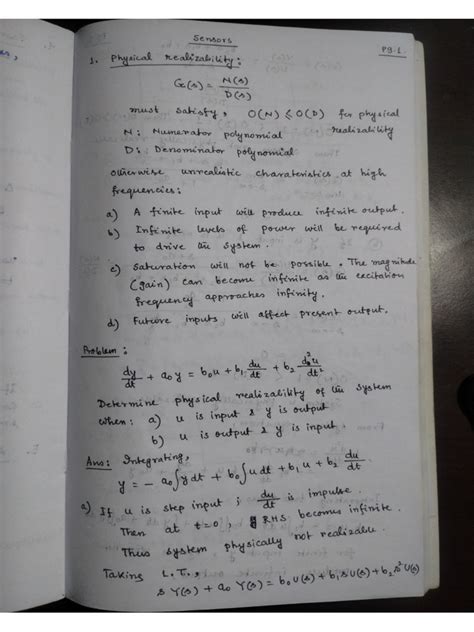 Sensors
Pg.1.
1. Physical realizability:
G(s) = N(s)
D(s)
must satisfy, O(N) ≤ O(D) for physical
realizability
N: Numerator polynomial
D: Denominator polynomial
otherwise unrealistic charateristics at high
frequencies:
a) A finite input will produce infinite output.
b) Infinite levels of power will be required
to drive the system.
c) Saturation will not be possible. The magnitude
(gain) can become infinite as the excitation
frequency approaches infinity.
d) Future inputs will affect present output.
Problem:
dy/dt + a₀y = b₀u + b₁ du/dt + b₂ d²u/dt²
Determine physical realizability of the system
when: a) u is input & y is output
b) u is output & y is input.
Ans: Integrating,
y = - a₀∫y dt + b₀∫u dt + b₁u + b₂ du/dt
a) If u is step input ; du/dt is impulse.
Then at t=0, RHS becomes infinite.
Thus system physically not realizable.
Taking L.T.,
s Y(s) + a₀ Y(s) = b₀U(s) + b₁ s U(s) + b₂ s² U(s)